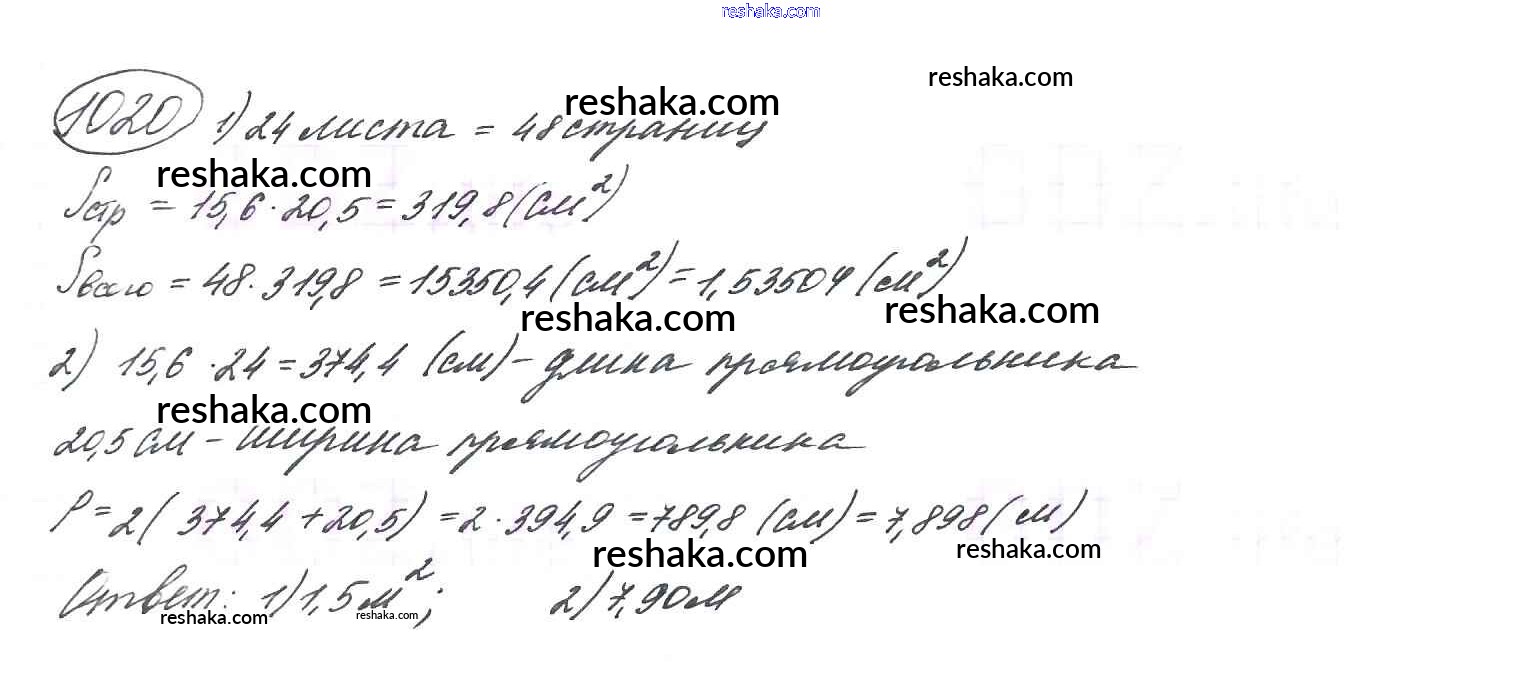 reshaka.com
reshaka.com
reshaka.com
1020 1) 24 листа = 48 страниц
reshaka.com
Sстр = 15,6 · 20,5 = 319,8 (см²)
Sвсего = 48 · 319,8 = 15350,4 (см²) = 1,53504 (м²)
reshaka.com
reshaka.com
2) 15,6 · 24 = 374,4 (см) - длина прямоугольника
reshaka.com
20,5 см - ширина прямоугольника
P = 2 ( 374,4 + 20,5 ) = 2 · 394,9 = 789,8 (см) = 7,898 (м)
reshaka.com
reshaka.com
Ответ: 1) 1,5 м²; 2) 7,90 м
reshaka.com
reshaka.com